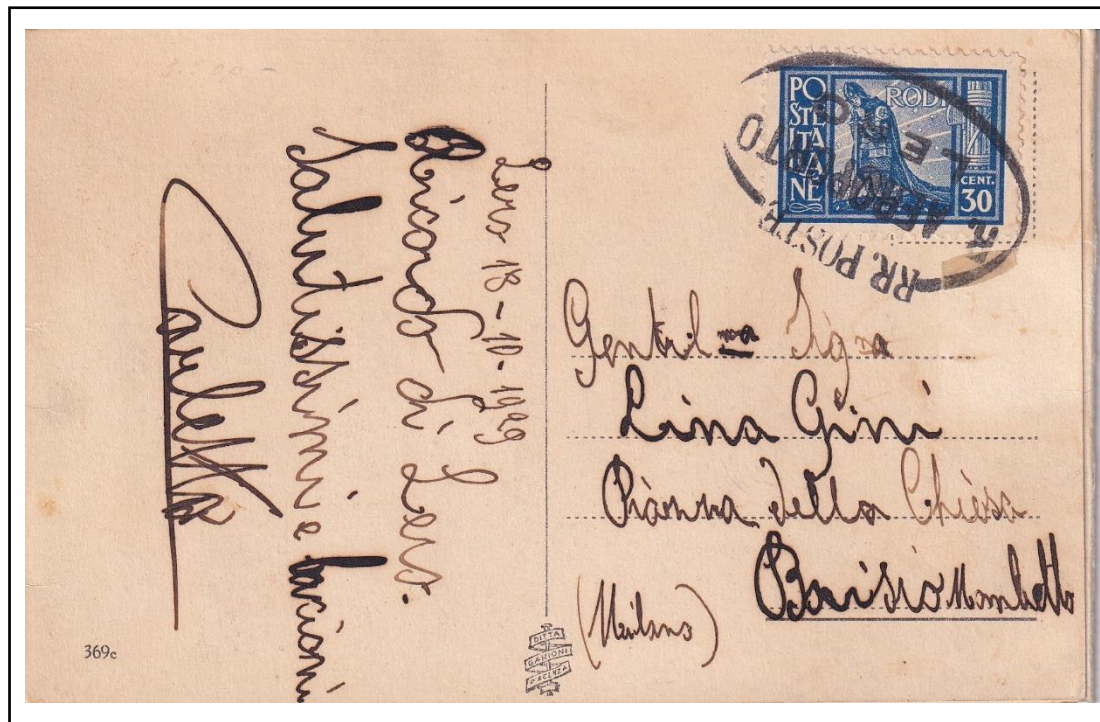 Lero 18-10-1929
Ricordo di Lero.
Salutissimi e bacioni
Carletto
369c
DITTA
POSTE ITALIANE
RODI
CENT.
30
RR. POSTE
R. AEROPORTO
LERO
Gentil ma Sigra
Lina Gini
Piazza della Chiesa
Bovisio Mombello
(Milano)